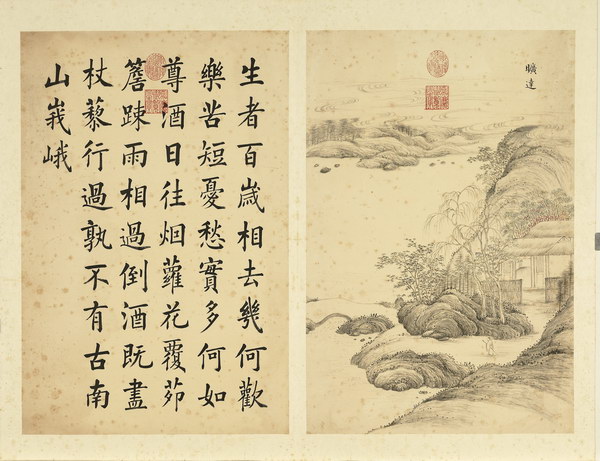 曠達
生者百歲相去幾何歡
樂苦短憂愁實多何如
尊酒日往烟蘿花覆茆
簷踈雨相過倒酒既盡
杖藜行過孰不有古南
山峩峨